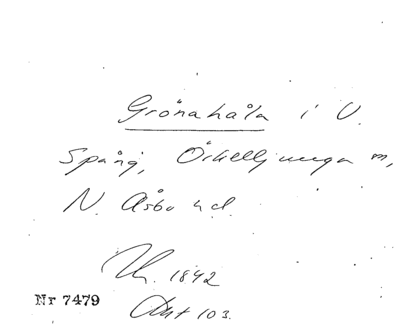 Grönahåla i V.
Spång, Örkelljunga m,
N. Åsbo hd.
1842
Nr 7479
Akt 103.